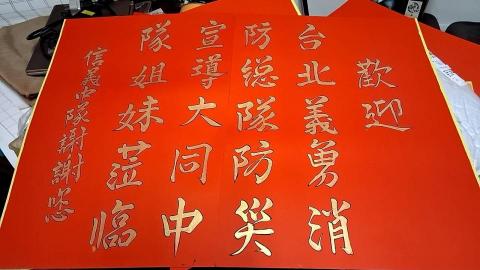 歡迎
台北義勇消
防總隊防災
宣導大同中
隊姐妹蒞臨
信義中隊謝謝您